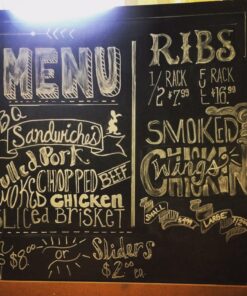 MENU
BQ
Sandwiches
ulled Pork
CHOPPED BEEF
CHICKEN
Sliced Brisket
$8.00 or Sliders
$2.00 ea.
RIBS
1/2 RACK $7.99
FULL $16.99
SMOKED
CHICKEN
Wings
SMALL
LARGE